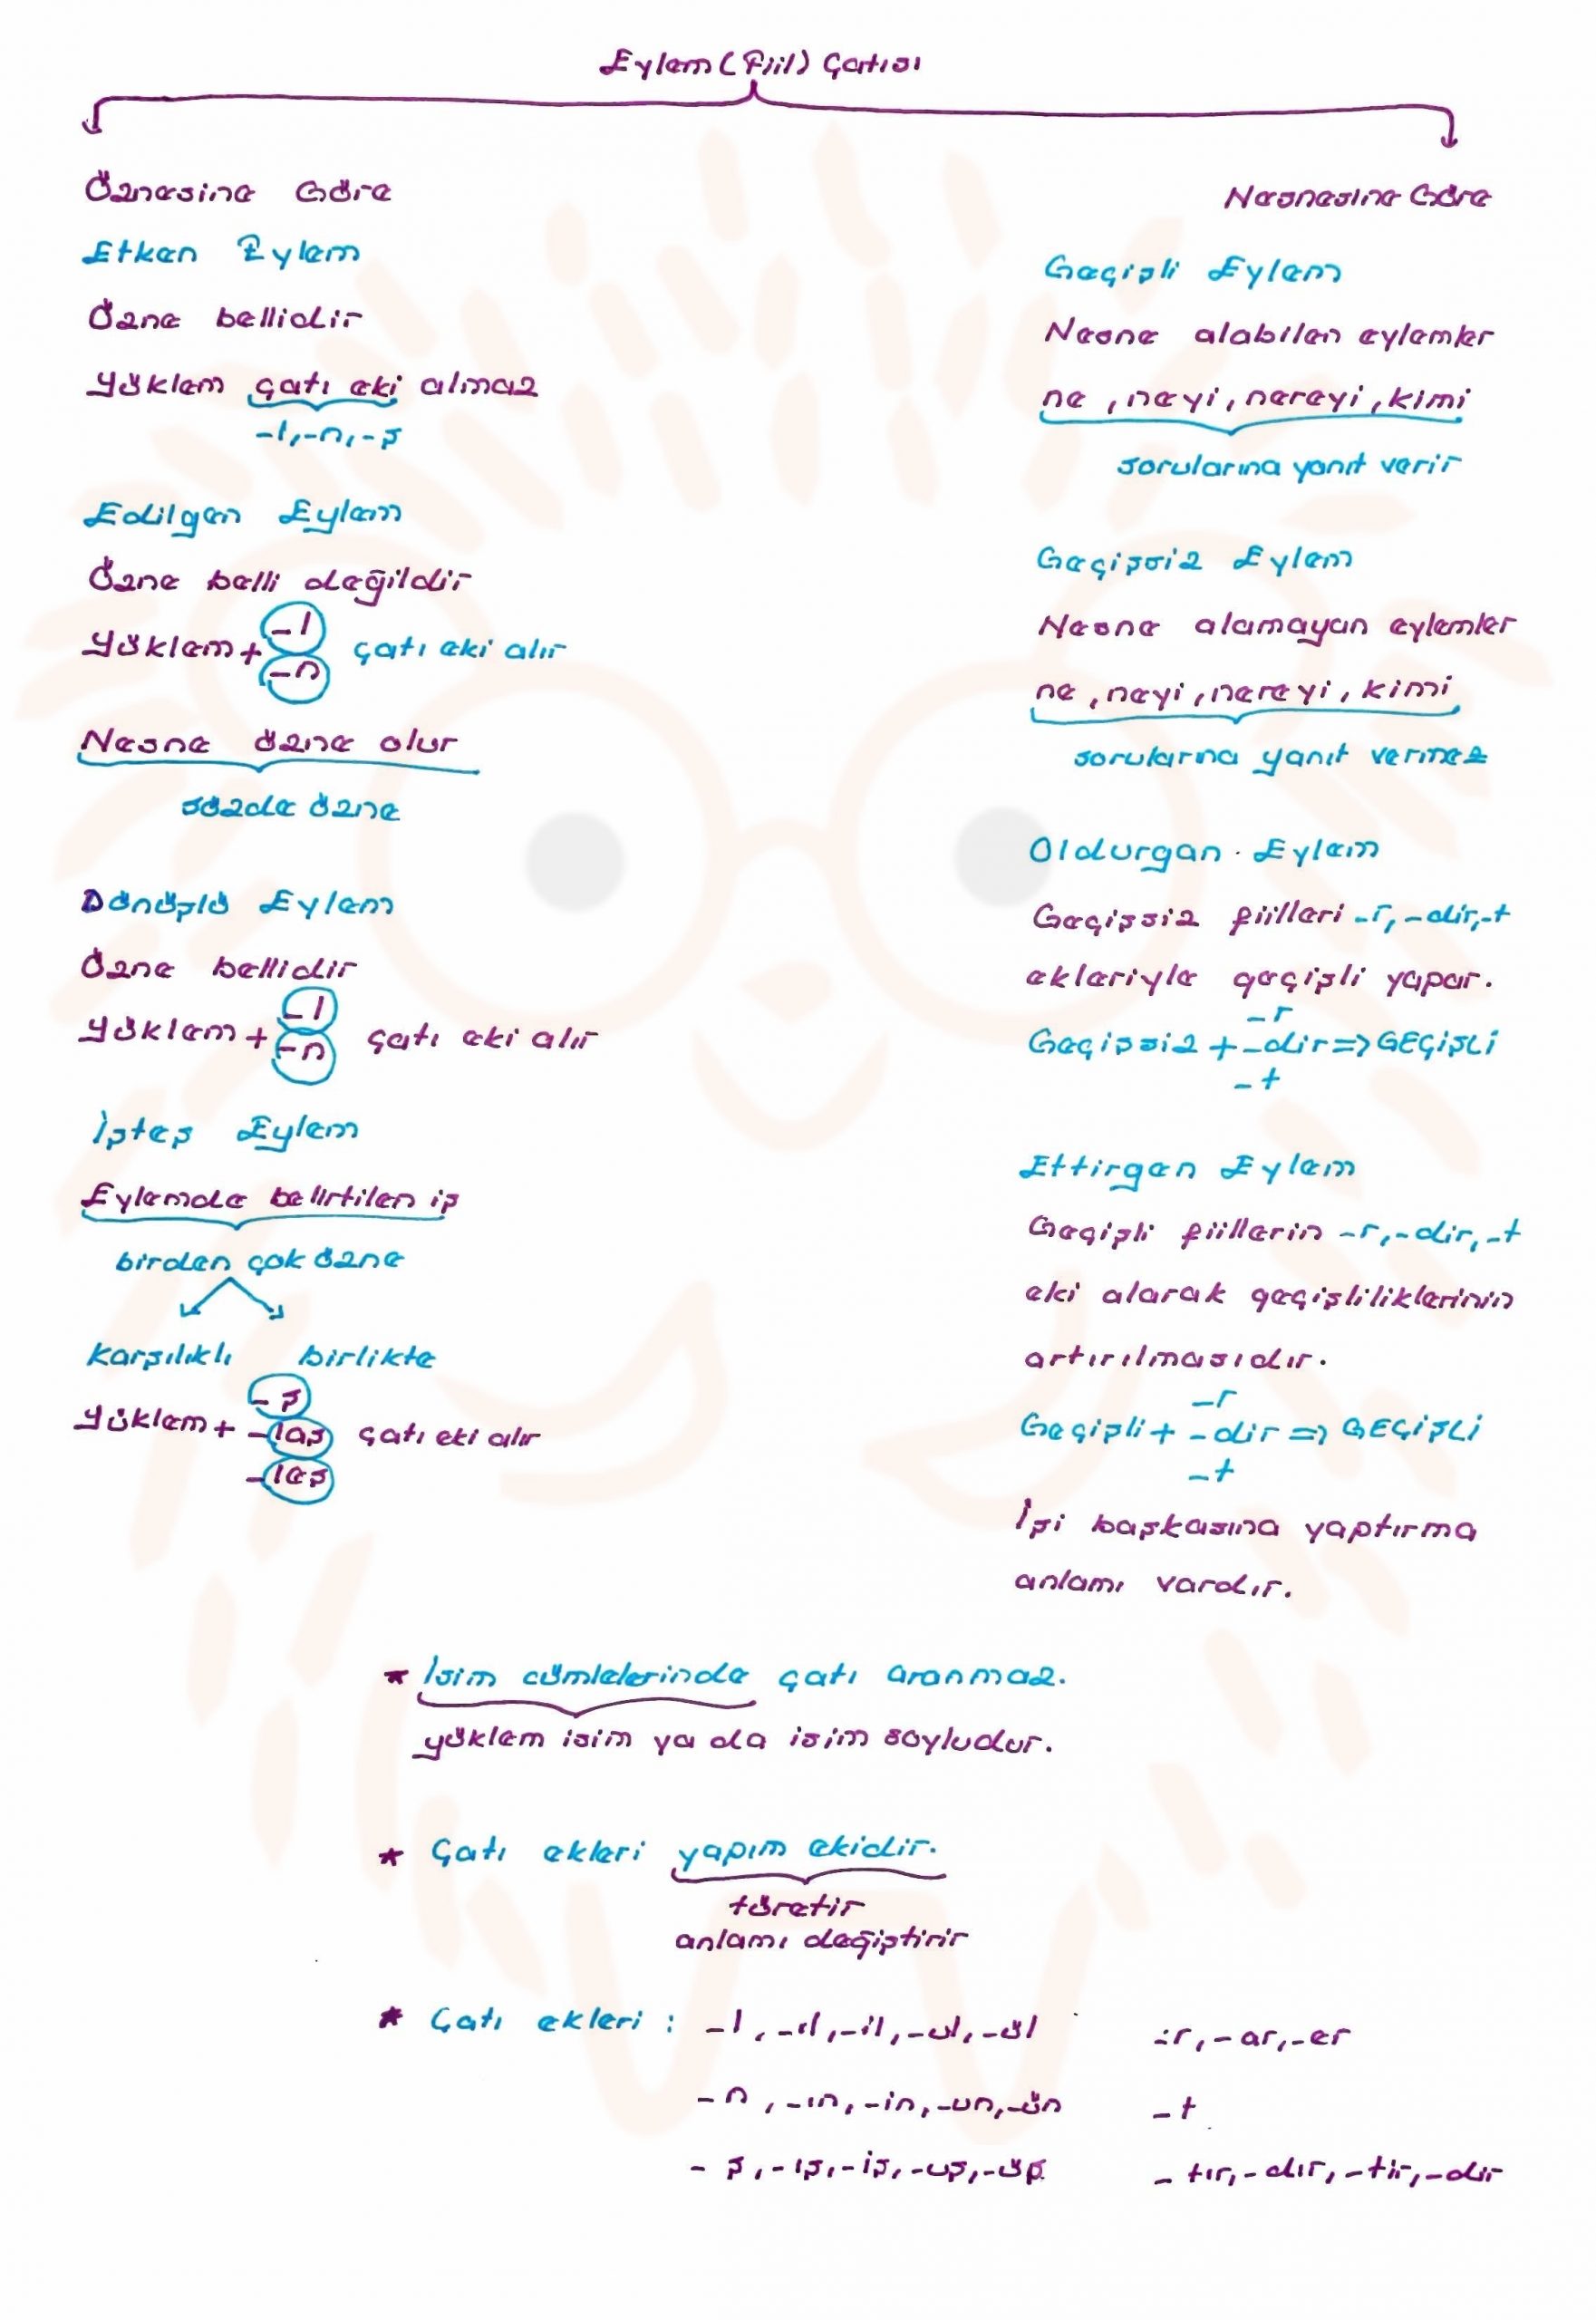 Eylem (Fiil) Çatısı
Öznesine Göre
Etken Eylem
Özne bellidir
Yüklem çatı eki almaz
-l,-n,-ş
Edilgen Eylem
Özne belli değildir
-l
Yüklem+ çatı eki alır
-n
Nesne özne olur
sözde özne
Dönüşlü Eylem
Özne bellidir
-l
Yüklem+ çatı eki alır
-n
İşteş Eylem
Eylemde belirtilen iş
birden çok özne
karşılıklı birlikte
-ş
Yüklem+ -laş çatı eki alır
-leş
Nesnesine Göre
Geçişli Eylem
Nesne alabilen eylemler
ne, neyi, nereyi, kimi
sorularına yanıt verir
Geçişsiz Eylem
Nesne alamayan eylemler
ne, neyi, nereyi, kimi
sorularına yanıt vermez
Oldurgan Eylem
Geçişsiz fiilleri -r, -dir,-t
ekleriyle geçişli yapar.
-r
Geçişsiz + -dir => GEÇİŞLİ
-t
Ettirgen Eylem
Geçişli fiillerin -r,-dir,-t
eki alarak geçişliliklerinin
artırılmasıdır.
-r
Geçişli + -dir => GEÇİŞLİ
-t
İşi başkasına yaptırma
anlamı vardır.
* İsim cümlelerinde çatı aranmaz.
yüklem isim ya da isim soyludur.
* Çatı ekleri yapım ekidir.
türetir
anlamı değiştirir
* Çatı ekleri : -l, -ıl, -il, -ul, -ül -r, -ar, -er
-n, -ın, -in, -un, -ün -t
-ş, -ış, -iş, -uş, -üş -tır, -dır, -tir, -dir